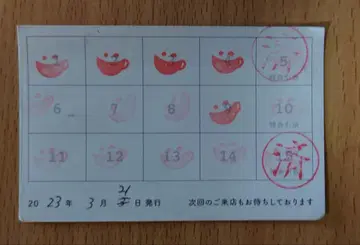 済 5
6 7 8 9 10
11 12 13 14 済
2023年 3月 日発行 次回のご来店もお待ちしております